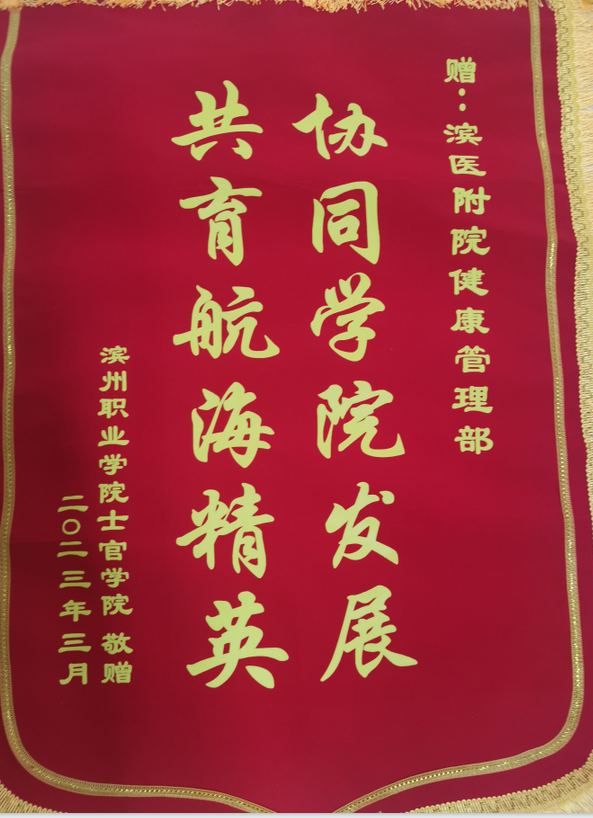 赠：滨医附院健康管理部
协同学院发展
共育航海精英
滨州职业学院士官学院 敬赠
二〇二三年三月